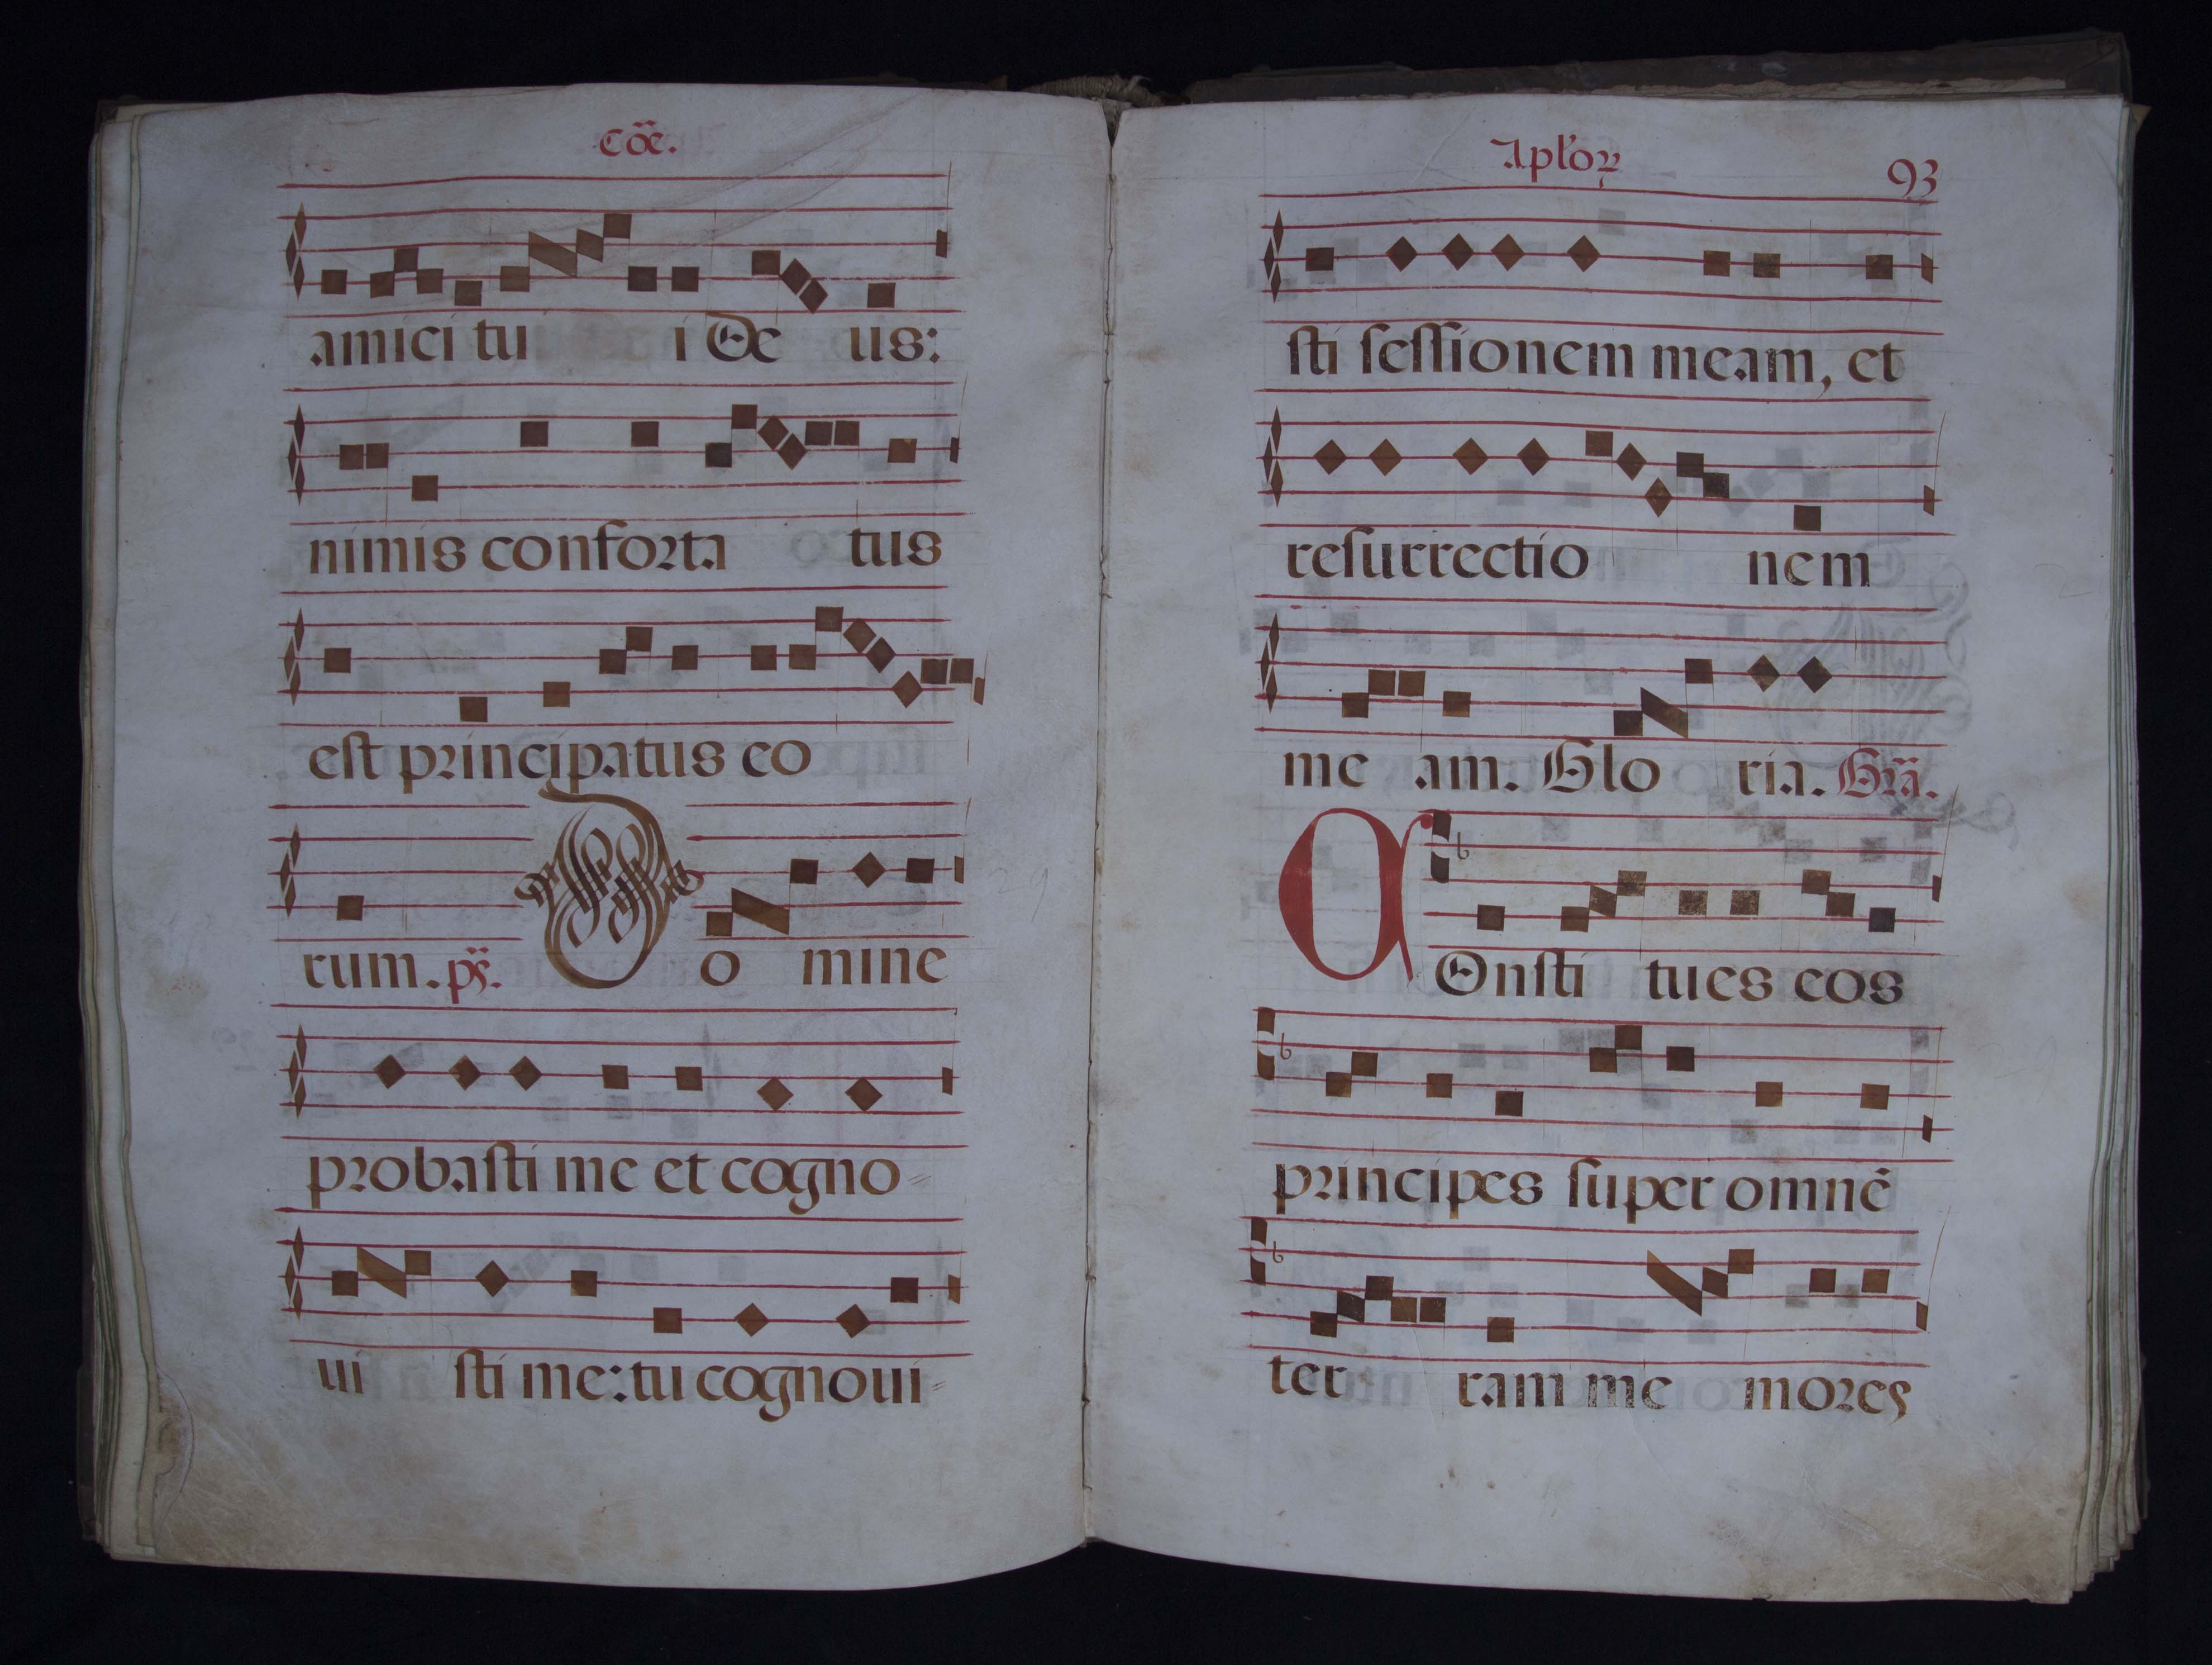 Cõe.
amici tu i De us:
nimis conforta tus
est principatus eo
rum. ps. D o mine
probasti me et cogno=
ui sti me: tu cognoui=
Aploꝝ 93
sti sessionem meam, et
resurrectio nem
me am. Glo ria. Gra.
COnsti tues eos
principes super omnē
ter ram me mores